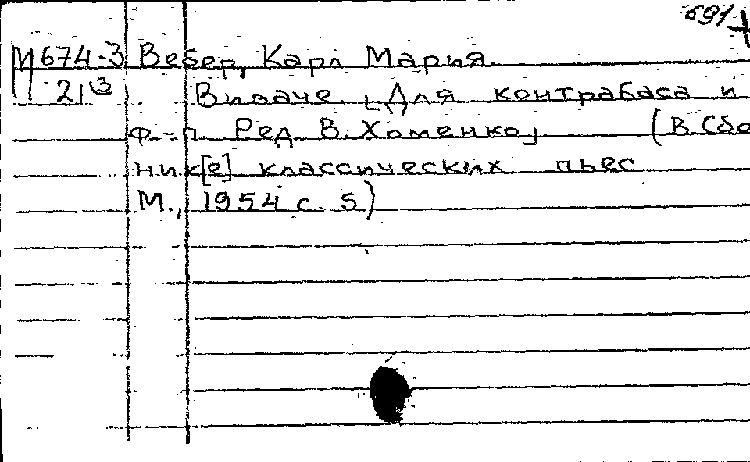 691
М 674-3 Вебер, Карл Мария.
213 Виваче. [Для контрабаса и
ф-п. Ред. В. Хоменко] (В Сбо
ник[е] классических пьес
М., 1954 с. 5)